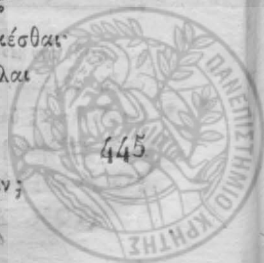 κέσθαι·
λαι
445
ν;
ΠΑΝΕΠΙΣΤΗΜΙΟ ΚΡΗΤΗΣ